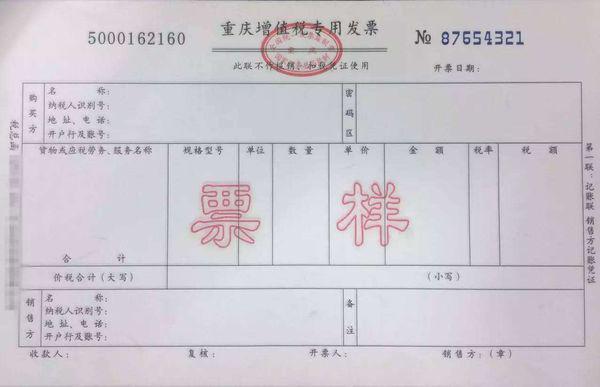 5000162160
重庆增值税专用发票
№ 87654321
此联不作报销、扣税凭证使用
开票日期:
购买方
名 称:
纳税人识别号:
地 址、电 话:
开户行及账号:
密码区
货物或应税劳务、服务名称 规格型号 单位 数 量 单 价 金 额 税率 税 额
票 样
合 计
价税合计(大写) (小写)
销售方
名 称:
纳税人识别号:
地 址、电 话:
开户行及账号:
备注
收款人: 复核: 开票人: 销售方:(章)
第一联:记账联 销售方记账凭证
税总函